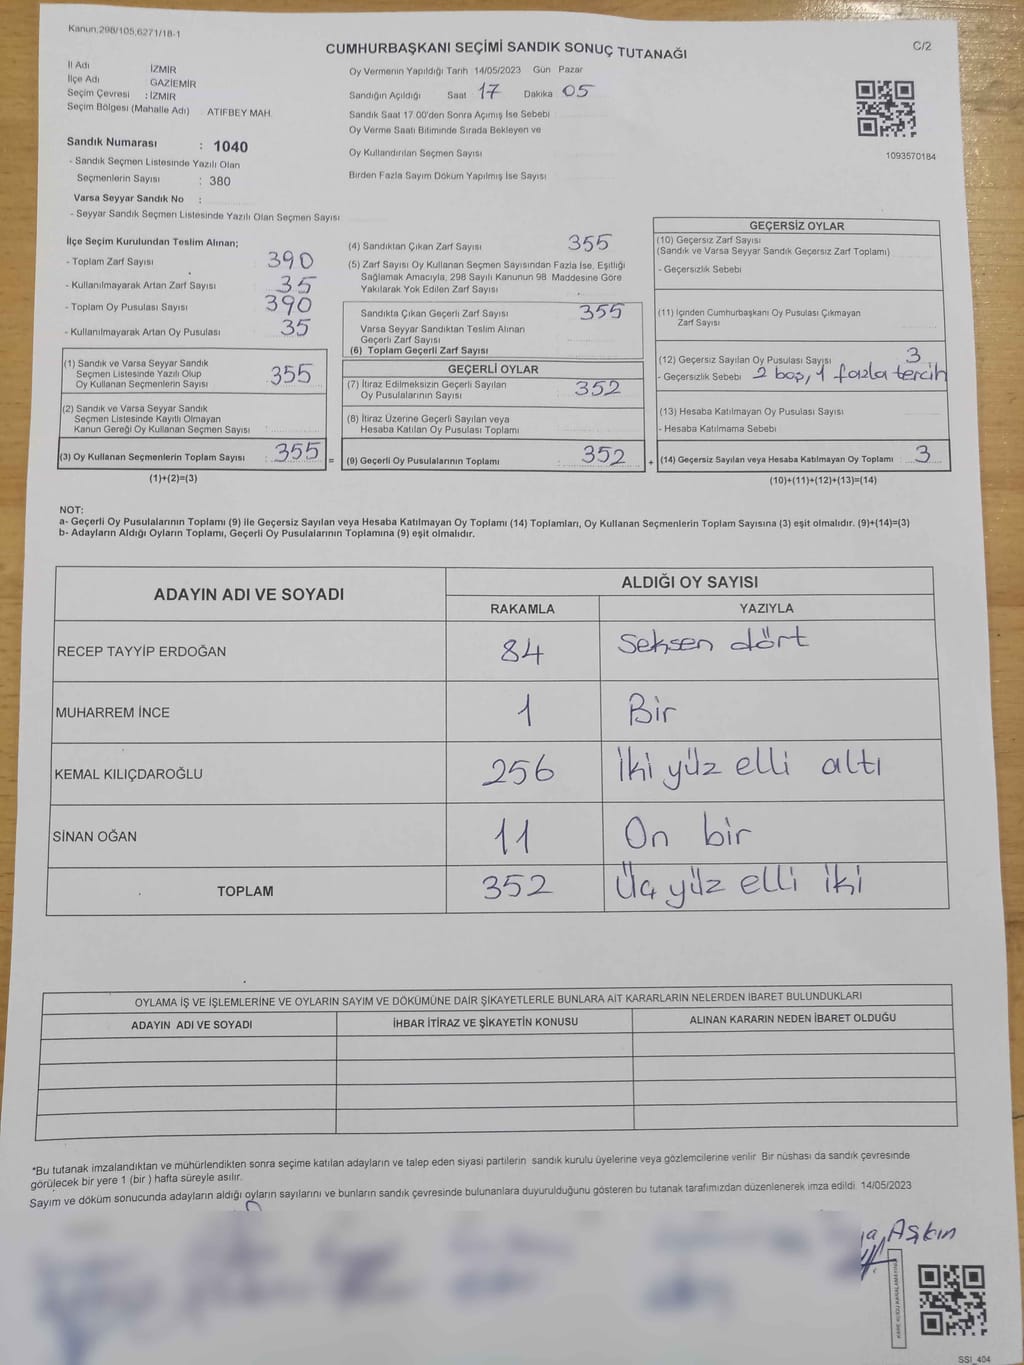 Kanun,298/105,6271/18-1
C/2
CUMHURBAŞKANI SEÇİMİ SANDIK SONUÇ TUTANAĞI
İl Adı İZMİR
İlçe Adı GAZİEMİR
Seçim Çevresi : İZMİR
Seçim Bölgesi (Mahalle Adı) ATIFBEY MAH.
Oy Vermenin Yapıldığı Tarih 14/05/2023 Gün Pazar
Sandığın Açıldığı Saat 17 Dakika 05
Sandık Saat 17.00'den Sonra Açımış İse Sebebi
Oy Verme Saati Bitiminde Sırada Bekleyen ve
Oy Kullandırılan Seçmen Sayısı
Birden Fazla Sayım Döküm Yapılmış İse Sayısı
1093570184
Sandık Numarası : 1040
- Sandık Seçmen Listesinde Yazılı Olan
Seçmenlerin Sayısı : 380
Varsa Seyyar Sandık No :
- Seyyar Sandık Seçmen Listesinde Yazılı Olan Seçmen Sayısı
İlçe Seçim Kurulundan Teslim Alınan;
- Toplam Zarf Sayısı 390
- Kullanılmayarak Artan Zarf Sayısı 35
- Toplam Oy Pusulası Sayısı 390
- Kullanılmayarak Artan Oy Pusulası 35
(1) Sandık ve Varsa Seyyar Sandık
Seçmen Listesinde Yazılı Olup
Oy Kullanan Seçmenlerin Sayısı 355
(2) Sandık ve Varsa Seyyar Sandık
Seçmen Listesinde Kayıtlı Olmayan
Kanun Gereği Oy Kullanan Seçmen Sayısı :
(3) Oy Kullanan Seçmenlerin Toplam Sayısı : 355 =
(1)+(2)=(3)
(4) Sandıktan Çıkan Zarf Sayısı 355
(5) Zarf Sayısı Oy Kullanan Seçmen Sayısından Fazla İse, Eşitliği
Sağlamak Amacıyla, 298 Sayılı Kanunun 98 Maddesine Göre
Yakılarak Yok Edilen Zarf Sayısı
Sandıkta Çıkan Geçerli Zarf Sayısı 355
Varsa Seyyar Sandıktan Teslim Alınan
Geçerli Zarf Sayısı
(6) Toplam Geçerli Zarf Sayısı
GEÇERLİ OYLAR
(7) İtiraz Edilmeksizin Geçerli Sayılan
Oy Pusulalarının Sayısı 352
(8) İtiraz Üzerine Geçerli Sayılan veya
Hesaba Katılan Oy Pusulası Toplamı
(9) Geçerli Oy Pusulalarının Toplamı 352 +
GEÇERSİZ OYLAR
(10) Geçersiz Zarf Sayısı
(Sandık ve Varsa Seyyar Sandık Geçersiz Zarf Toplamı)
- Geçersizlik Sebebi
(11) İçinden Cumhurbaşkanı Oy Pusulası Çıkmayan
Zarf Sayısı
(12) Geçersiz Sayılan Oy Pusulası Sayısı 3
- Geçersizlik Sebebi 2 boş, 1 fazla tercih
(13) Hesaba Katılmayan Oy Pusulası Sayısı
- Hesaba Katılmama Sebebi
(14) Geçersiz Sayılan veya Hesaba Katılmayan Oy Toplamı 3
(10)+(11)+(12)+(13)=(14)
NOT:
a- Geçerli Oy Pusulalarının Toplamı (9) ile Geçersiz Sayılan veya Hesaba Katılmayan Oy Toplamı (14) Toplamları, Oy Kullanan Seçmenlerin Toplam Sayısına (3) eşit olmalıdır. (9)+(14)=(3)
b- Adayların Aldığı Oyların Toplamı, Geçerli Oy Pusulalarının Toplamına (9) eşit olmalıdır.
ADAYIN ADI VE SOYADI ALDIĞI OY SAYISI
RAKAMLA YAZIYLA
RECEP TAYYİP ERDOĞAN 84 Seksen dört
MUHARREM İNCE 1 Bir
KEMAL KILIÇDAROĞLU 256 İki yüz elli altı
SİNAN OĞAN 11 On bir
TOPLAM 352 Üç yüz elli iki
OYLAMA İŞ VE İŞLEMLERİNE VE OYLARIN SAYIM VE DÖKÜMÜNE DAİR ŞİKAYETLERLE BUNLARA AİT KARARLARIN NELERDEN İBARET BULUNDUKLARI
ADAYIN ADI VE SOYADI İHBAR İTİRAZ VE ŞİKAYETİN KONUSU ALINAN KARARIN NEDEN İBARET OLDUĞU
*Bu tutanak imzalandıktan ve mühürlendikten sonra seçime katılan adayların ve talep eden siyasi partilerin sandık kurulu üyelerine veya gözlemcilerine verilir Bir nüshası da sandık çevresinde
görülecek bir yere 1 (bir ) hafta süreyle asılır.
Sayım ve döküm sonucunda adayların aldığı oyların sayılarını ve bunların sandık çevresinde bulunanlara duyurulduğunu gösteren bu tutanak tarafımızdan düzenlenerek imza edildi. 14/05/2023
Aşkın
KARE KODU KARALAMAYINIZ
SSI_404